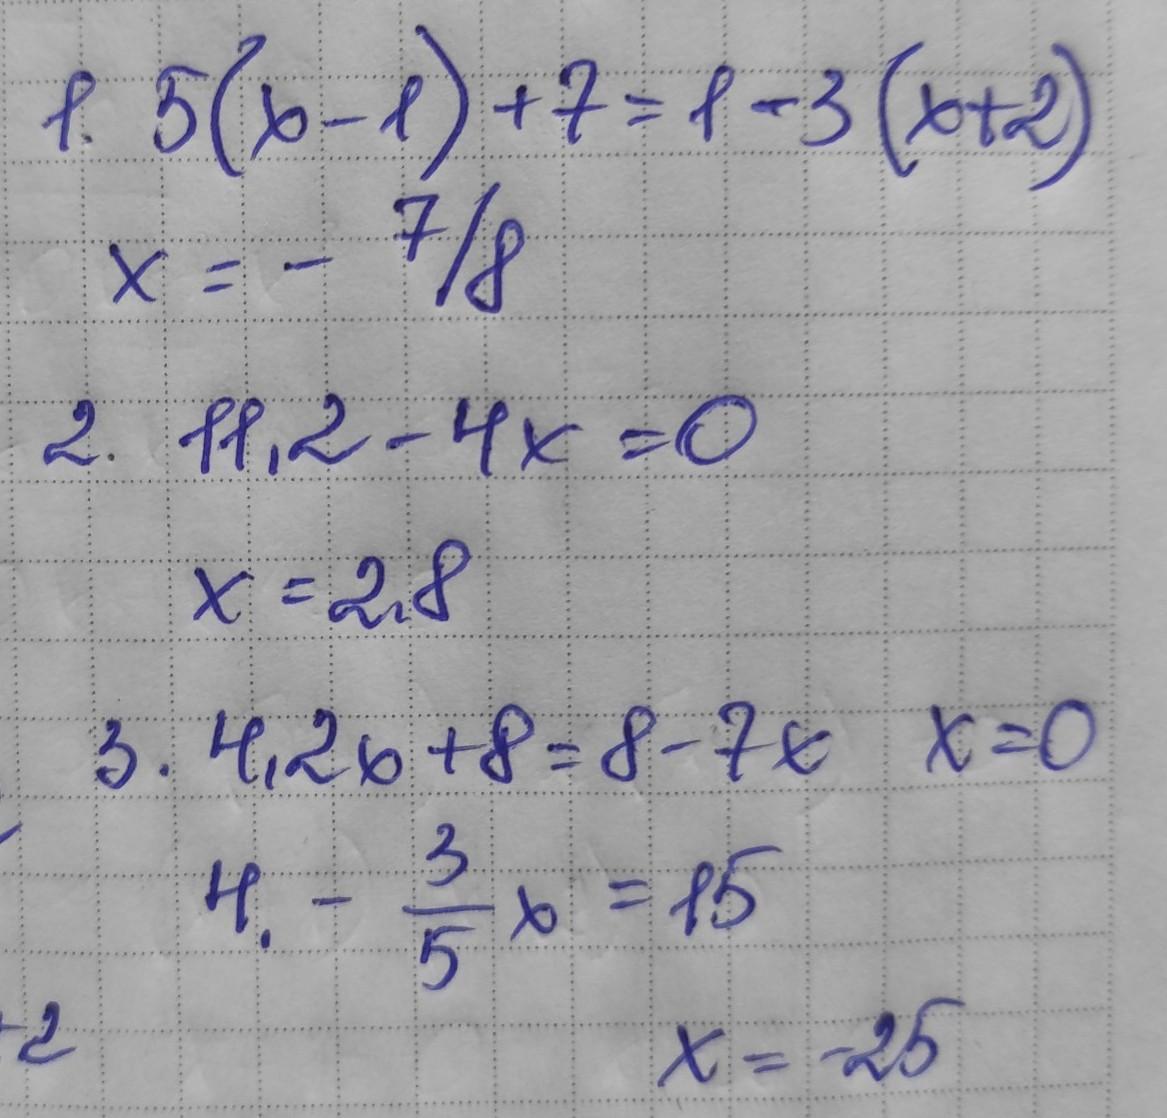 1. 5(x-1)+7=1-3(x+2)
x = - 7/8
2. 11,2-4x=0
x = 2,8
3. 4,2x+8=8-7x x=0
4. - 3/5 x = 15
-2
x = -25